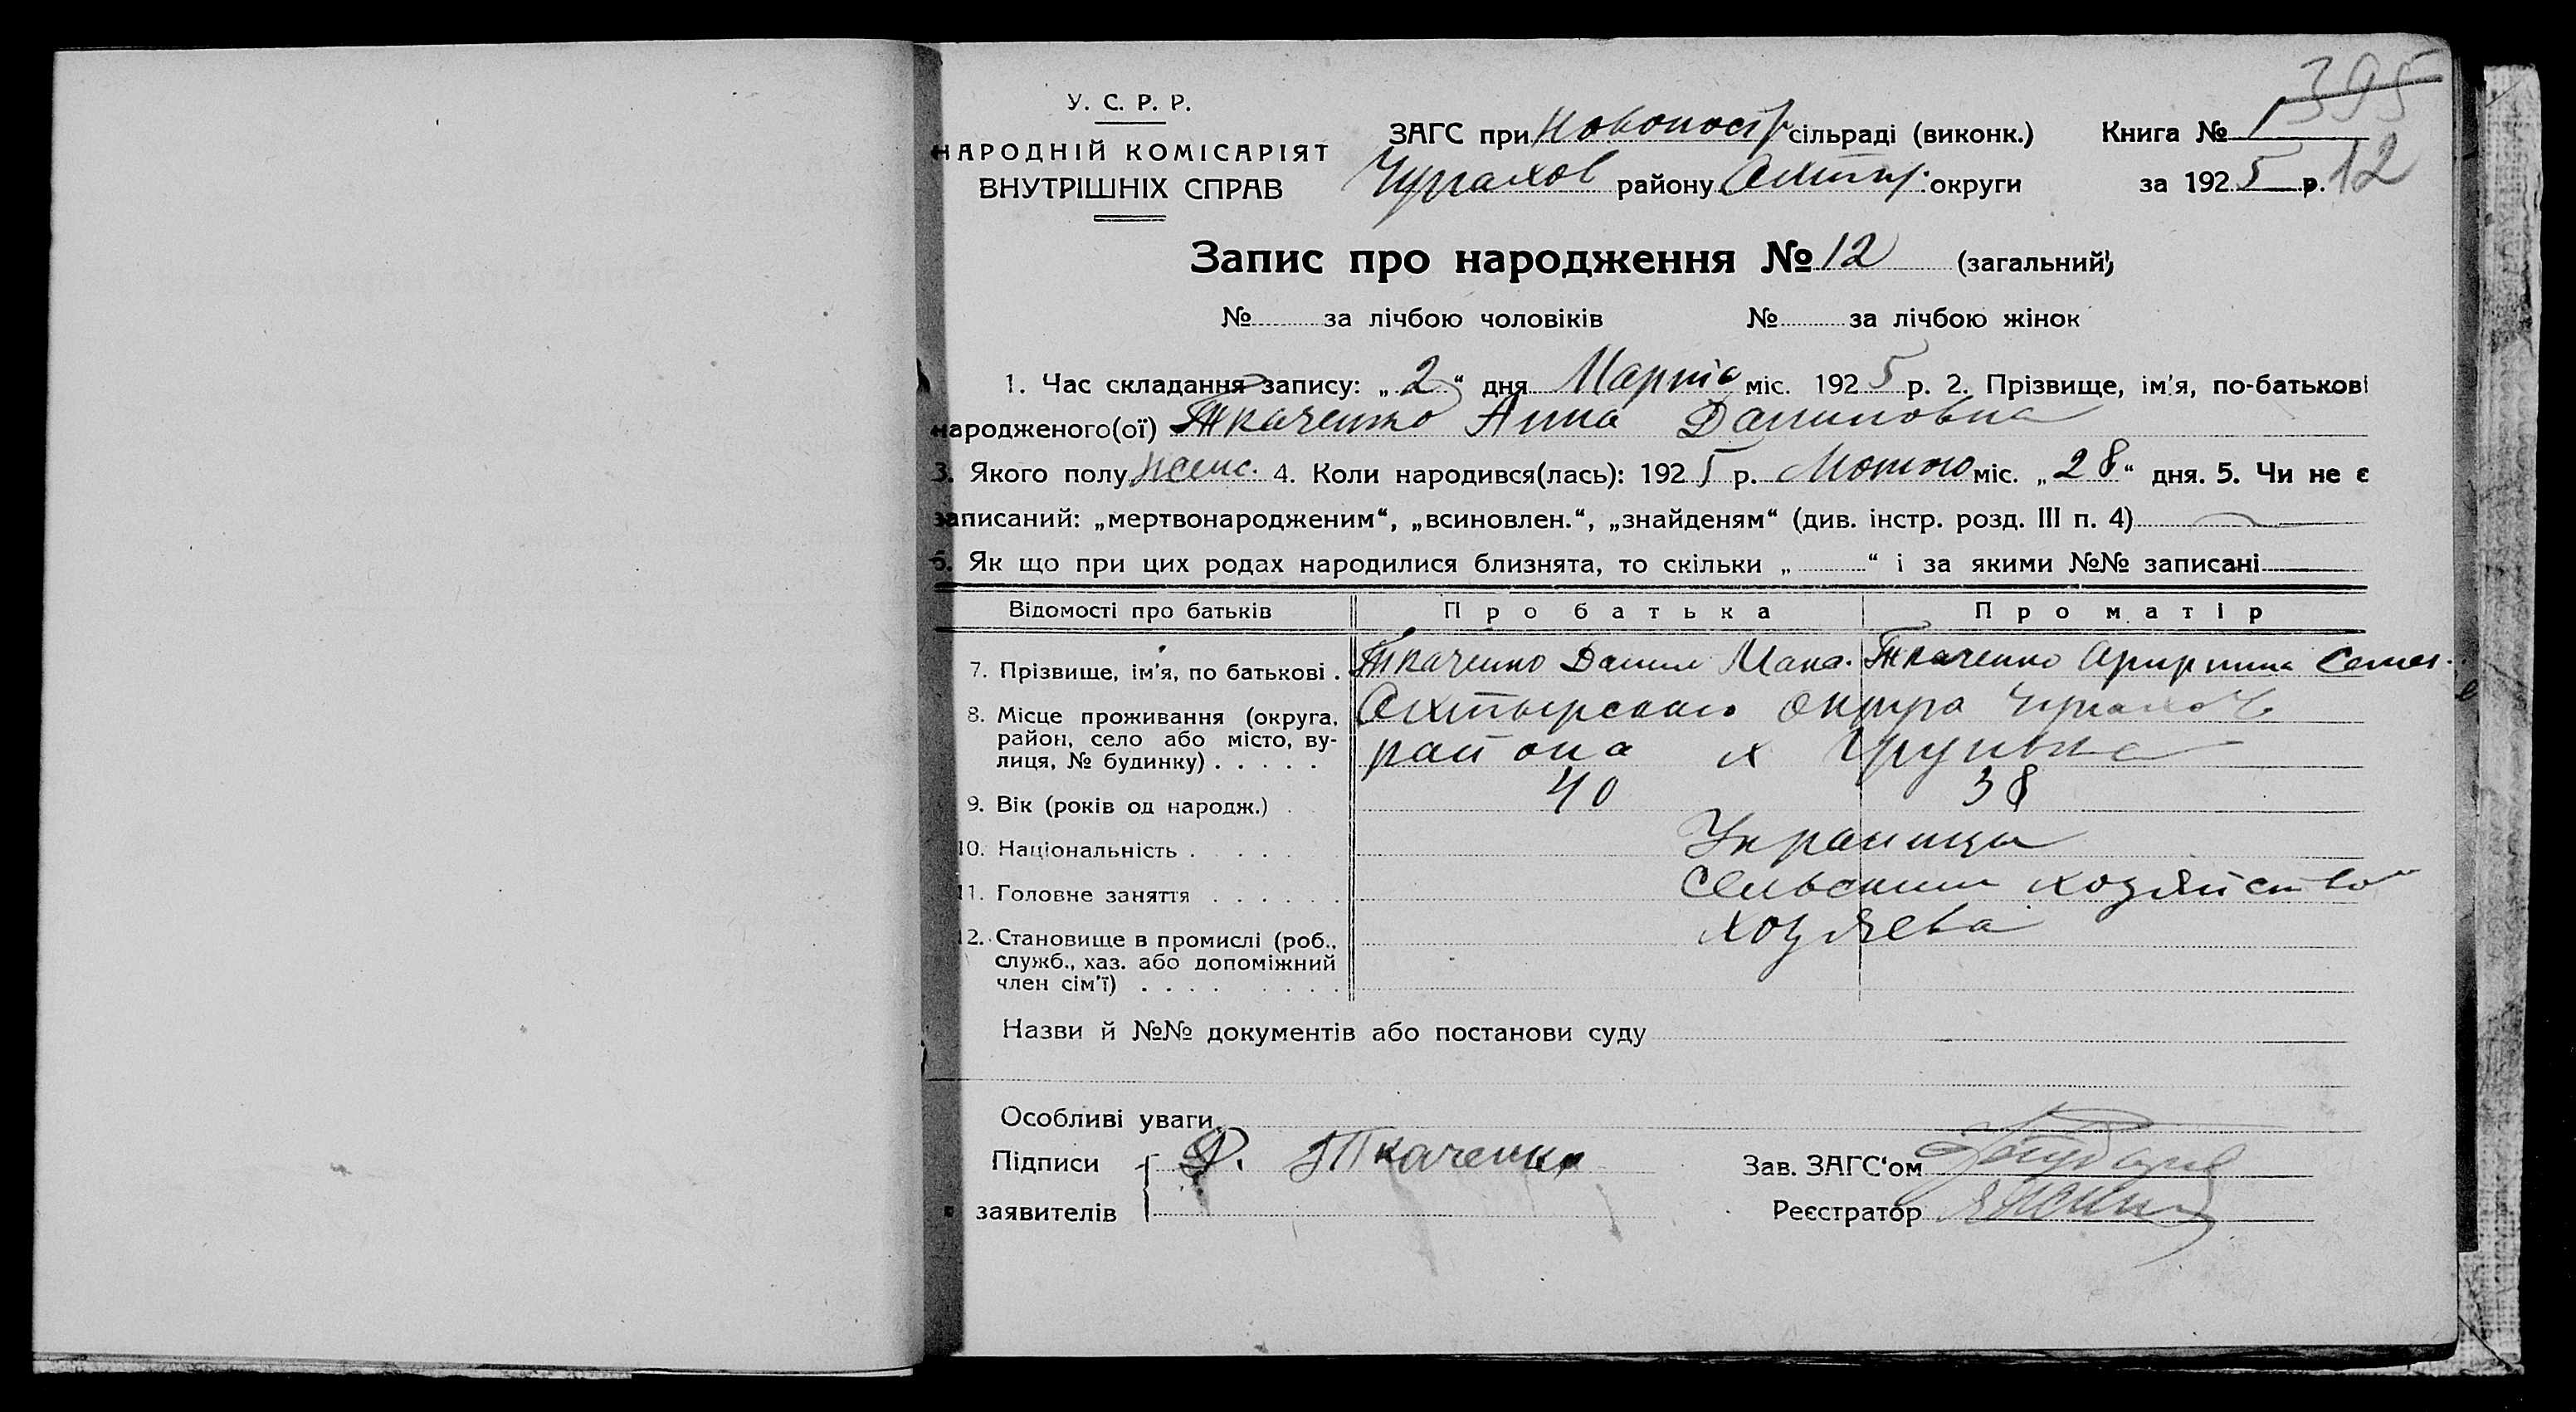 395
У. С. Р. Р.
НАРОДНІЙ КОМІСАРІЯТ
ВНУТРІШНІХ СПРАВ
ЗАГС при Новопостр сільраді (виконк.) Книга № 1
району Ахтыр. округи за 1925 р. 12
Запис про народження № 12 (загальний)
№ за лічбою чоловіків № за лічбою жінок
1. Час складання запису: „2“ дня Марта міс. 1925 р. 2. Прізвище, ім'я, по-батькові
народженого(ої) Ткаченко Анна Даниловна
3. Якого полу женс. 4. Коли народився(лась): 1925 р. міс. „28“ дня. 5. Чи не є
записаний: „мертвонародженим“, „всиновлен.“, „знайденям“ (див. інстр. розд. III п. 4)
6. Як що при цих родах народилися близнята, то скільки „ “ і за якими №№ записані
Відомості про батьків Про батька Про матір
7. Прізвище, ім'я, по батькові . Ткаченко Данил Мака. Ткаченко Семен.
8. Місце проживання (округа, район, село або місто, вулиця, № будинку) . . . . . Ахтырского округа
района х Грунька
9. Вік (років од народж.) . 40 38
10. Національність . . . . . Украинцы
11. Головне заняття . . . . . . Сельским хозяйство
12. Становище в промислі (роб., служб., хаз. або допоміжний член сім'ї) . . . . . . . . хозяева
Назви й №№ документів або постанови суду
Особливі уваги
Підписи Д. Ткаченко Зав. ЗАГС'ом
заявителів Реєстратор